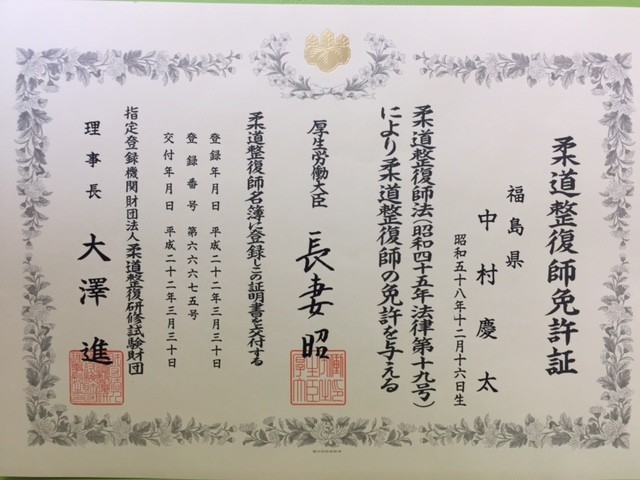 柔道整復師免許証
福島県
中村慶太
昭和五十八年十二月十六日生
柔道整復師法(昭和四十五年法律第十九号)
により柔道整復師の免許を与える
厚生労働大臣
長妻昭
柔道整復師名簿に登録しこの証明書を交付する
登録年月日 平成二十二年三月三十日
登録番号 第六六六七五号
交付年月日 平成二十二年三月三十日
指定登録機関財団法人柔道整復研修試験財団
理事長 大澤進